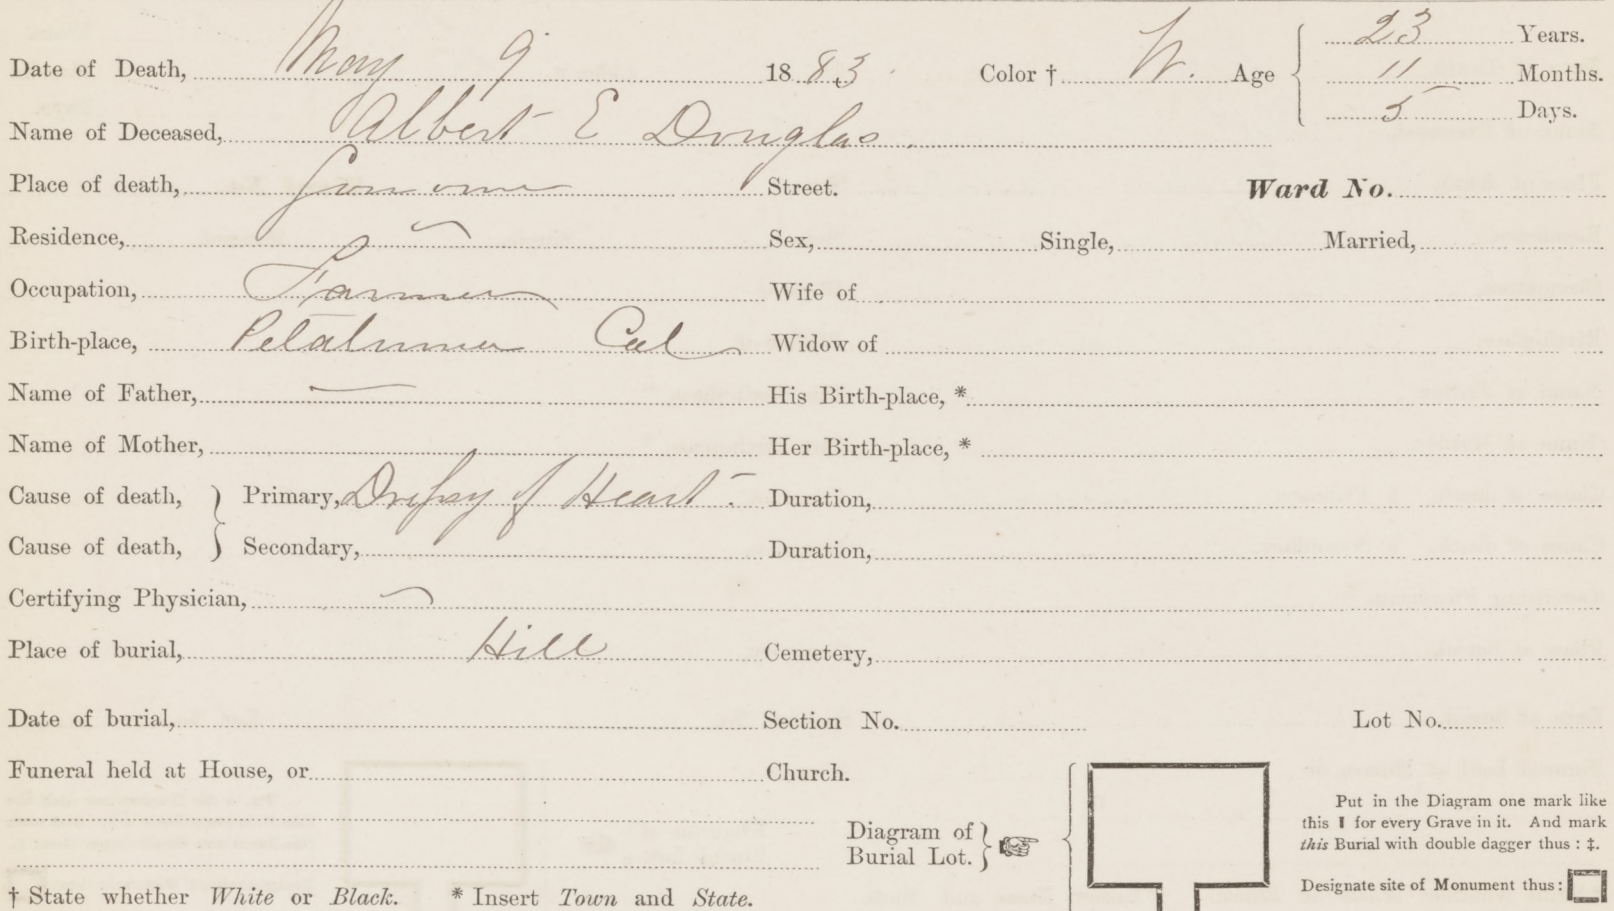 Date of Death, May 9 1883 Color † W. Age 23 Years.
11 Months.
5 Days.
Name of Deceased, Albert E Douglas.
Place of death, Street. Ward No.
Residence, Sex, Single, Married,
Occupation, Farmer Wife of
Birth-place, Petaluma Cal Widow of
Name of Father, His Birth-place, *
Name of Mother, Her Birth-place, *
Cause of death, Primary, Dropsy of Heart Duration,
Cause of death, Secondary, Duration,
Certifying Physician,
Place of burial, Hill Cemetery,
Date of burial, Section No. Lot No.
Funeral held at House, or Church.
Diagram of
Burial Lot.
Put in the Diagram one mark like
this ▮ for every Grave in it. And mark
this Burial with double dagger thus : ‡.
Designate site of Monument thus :
† State whether White or Black. * Insert Town and State.